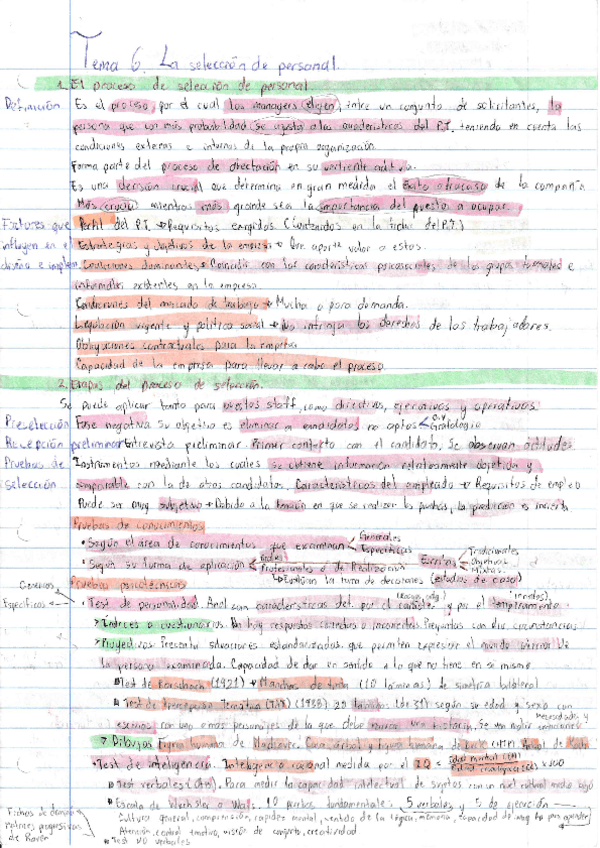 Tema 6. La selección de personal.
1. El proceso de selección de personal
Definición Es el proceso, por el cual los managers eligen, entre un conjunto de solicitantes, la
persona que con más probabilidad se ajusta a las características del P.T, teniendo en cuenta las
condiciones externas e internas de la propia organización.
Forma parte del proceso de afectación en su vertiente activa.
Es una decisión crucial que determina en gran medida el éxito o fracaso de la compañía
Más crucial mientras más grande sea la importancia del puesto a ocupar.
Factores que Perfil del P.T. → Requisitos exigidos (contenidos en la ficha del P.T.)
influyen en el Estrategias y objetivos de la empresa → Que aporte valor a estos.
diseño e Coaliciones dominantes → Coincidir con las características psicosociales de los grupos formales e
informales existentes en la empresa.
Condiciones del mercado de trabajo → Mucha o poca demanda.
Legislación vigente y política social → No infringir los derechos de los trabajadores.
Obligaciones contractuales para la empresa
Capacidad de la empresa para llevar a cabo el proceso.
2. Etapas del proceso de selección.
Se puede aplicar tanto para puestos staff, como directivos, ejecutivos y operativos.
Preselección Fase negativa. Su objetivo es eliminar a candidatos no aptos C.V. Grafología
Recepción preliminar Entrevista preliminar. Primer contacto con el candidato. Se observan actitudes
Pruebas de Instrumentos mediante los cuales se obtiene información relativamente objetiva y
selección comparable con la de otros candidatos. Características del empleado → Requisitos de empleo
Puede ser muy subjetivo → Debido a la tensión en que se realizan las pruebas, la predicción es incierta
Pruebas de conocimientos
• Según el área de conocimientos que examinan Generales
Específicas
• Según su forma de aplicación Orales
Profesionales o de Realización Escritas Tradicionales
Objetivas
Mixtas
Evalúan la toma de decisiones (estudios de caso)
Pruebas psicotécnicas
Genéricos
Específicos • Test de personalidad. Anal. con características det. por el carácter y por el temperamento
> Índices o cuestionarios. No hay respuestas correctas o incorrectas. Preguntas con circunstancias
> Proyectivos. Presenta situaciones estandarizadas que permiten expresar el mundo interior de
la persona examinada. Capacidad de dar un sentido a lo que no tiene en sí mismo
Test de Rorschach (1921) → Manchas de tinta (10 láminas) de simetría bilateral
Test de Apercepción Temática (TAT) (1938) 20 láminas (de 31) según su edad y sexo con
escenas con uno o más personajes de la que debe narrar una historia. Se
necesidades y
> Dibujos Figura humana de
• Test de inteligencia. Inteligencia racional medida por el IQ = Edad mental (EM) / Edad cronológica (EC) × 100
Test verbales (Otis). Para medir la capacidad intelectual de sujetos con un nivel cultural medio
Escala de Wechsler o Wais. 10 pruebas fundamentales: 5 verbales y 5 de ejecución
Cultura general, comprensión, rapidez mental, sentido de la lógica, memoria, capacidad de para aprender
Atención, control emotivo, visión de conjunto, creatividad
Test NO verbales
Fichas de dominó
Matrices progresivas
de Raven